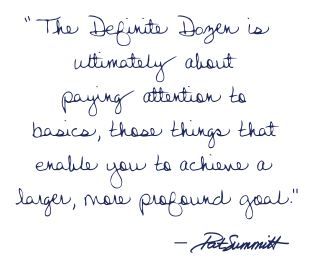 "The Definite Dozen is
ultimately about
paying attention to
basics, those things that
enable you to achieve a
larger, more profound goal."
— Pat Summitt